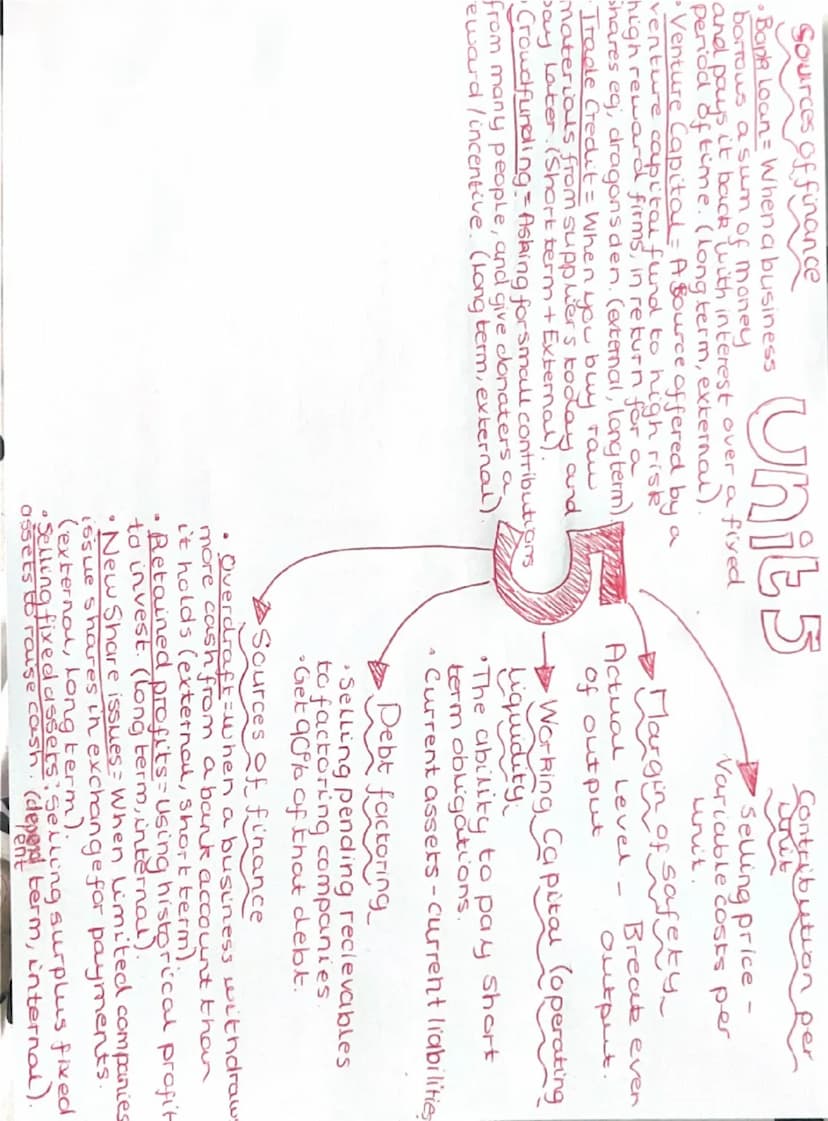 Unit 5
5
Sources of finance
• Bank Loan = When a business
borrows a sum of money
and pays it back with interest over a fixed
period of time. (Long term, external).
• Venture Capital = A source offered by a
venture capital fund to high risk
high reward firms, in return for a
shares eg, dragons den. (external, long term)
• Trade Credit = When you buy raw
materials from suppliers today and
pay later. (Short term + External).
• Crowdfunding = Asking for small contributions
from many people, and give donaters a
reward / incentive. (Long term, external)
Contribution per
unit
Selling price -
Variable costs per
unit.
Margin of safety
Actual Level - Break even
of output output.
Working Capital (operating
Liquidity.
• The ability to pay short
term obligations.
• Current assets - current liabilities
Debt factoring
• Selling pending recievables
to factoring companies.
• Get 90% of that debt.
Sources of finance
• Overdraft = when a business withdraw
more cash from a bank account than
it holds (external, short term)
• Retained profits = using historical profit
to invest. (long term, internal).
• New Share issues = When limited companies
issue shares in exchange for payments.
(external, long term).
• Selling fixed assets: Selling surplus fixed
assets to raise cash. (depend term, internal).
ent